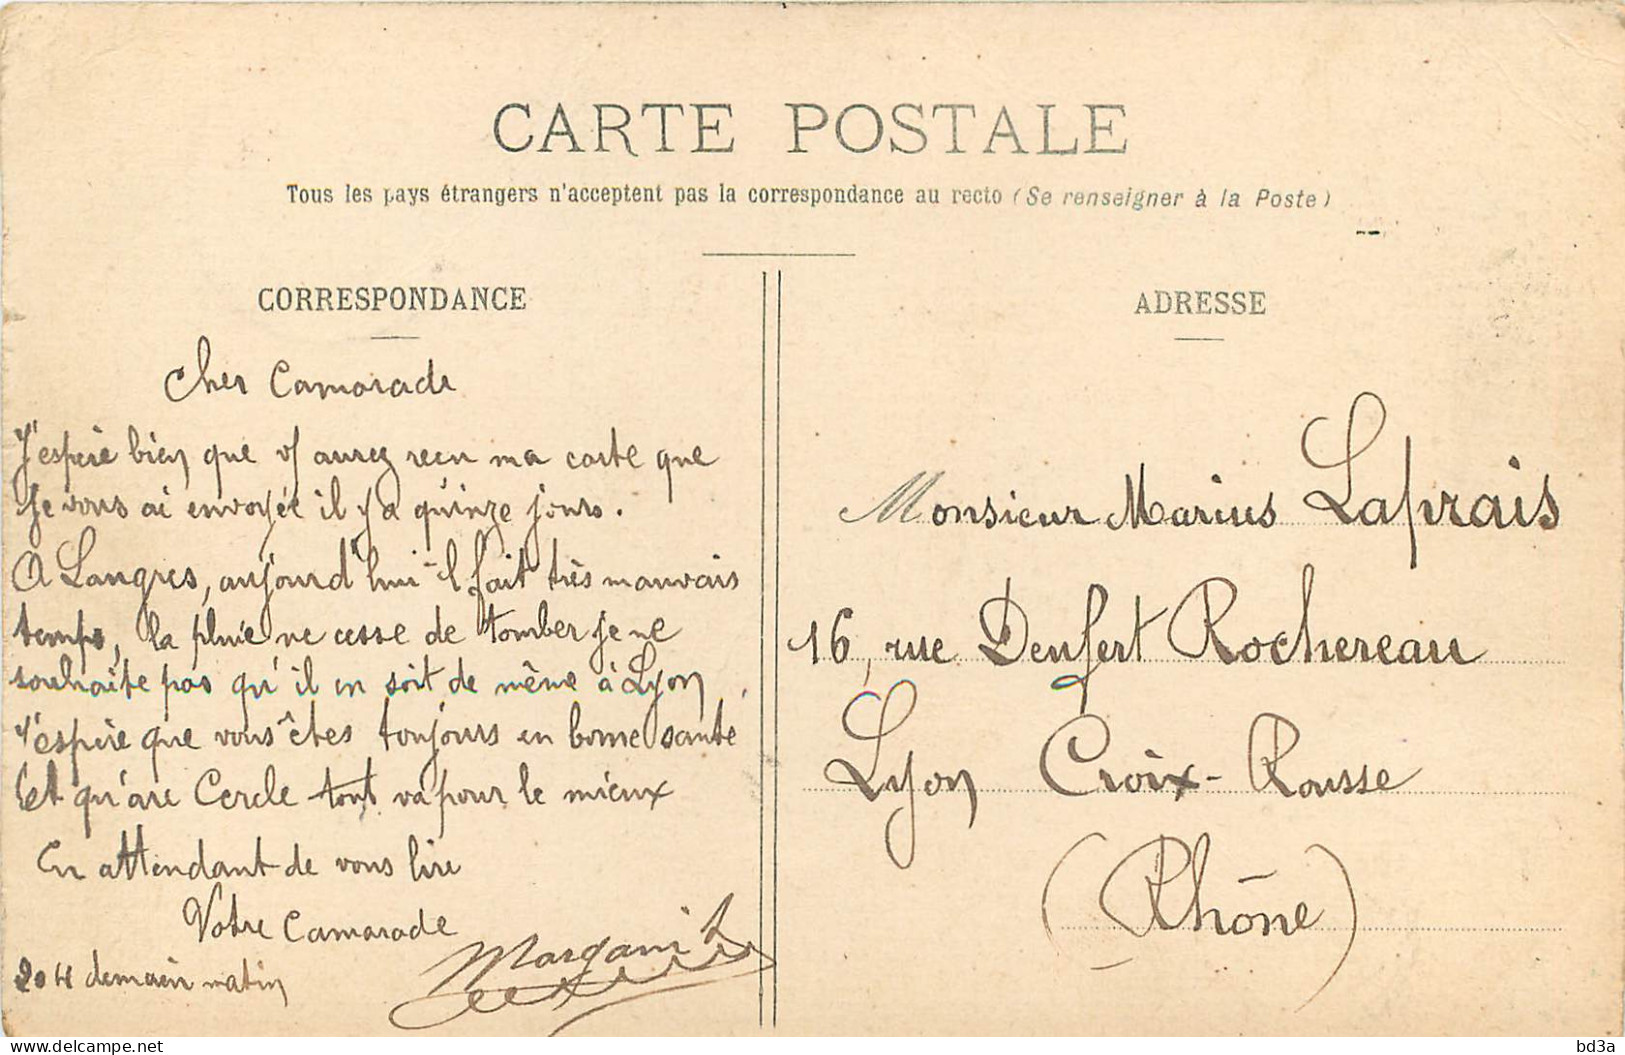 CARTE POSTALE
Tous les pays étrangers n'acceptent pas la correspondance au recto (Se renseigner à la Poste)
CORRESPONDANCE
Cher Camarade
J'espère bien que vs aurez reçu ma carte que
Je vous ai envoyée il y a quinze jours.
A Langres, aujourd'hui il fait très mauvais
temps, la pluie ne cesse de tomber je ne
souhaite pas qu'il en soit de même à Lyon,
J'espère que vous êtes toujours en bonne santé
Et qu'au Cercle tout va pour le mieux
En attendant de vous lire
Votre Camarade
demain matin
ADRESSE
Monsieur Marius Laprais
16, rue Denfert Rochereau
Lyon Croix-Rousse
(Rhône)
delcampe.net
bd3a